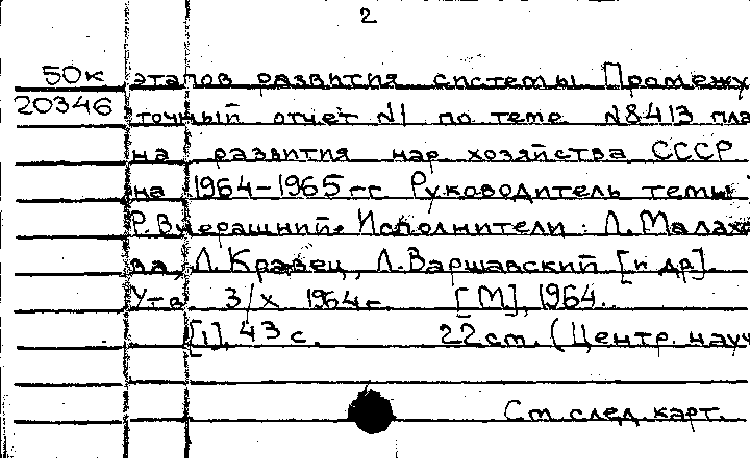 2
50к этапов развития системы Промежу
20346 точный отчет N1 по теме N8413 пла
на развития нар. хозяйства СССР
на 1964-1965 гг Руководитель темы
Р. Вчерашний. Исполнители: Л. Малахо
ва, Л. Кравец, Л. Варшавский [и др].
Утв. 3/X 1964 г. [М], 1964.
[1], 43 с. 22 cm. (Центр. науч
См. след. карт.